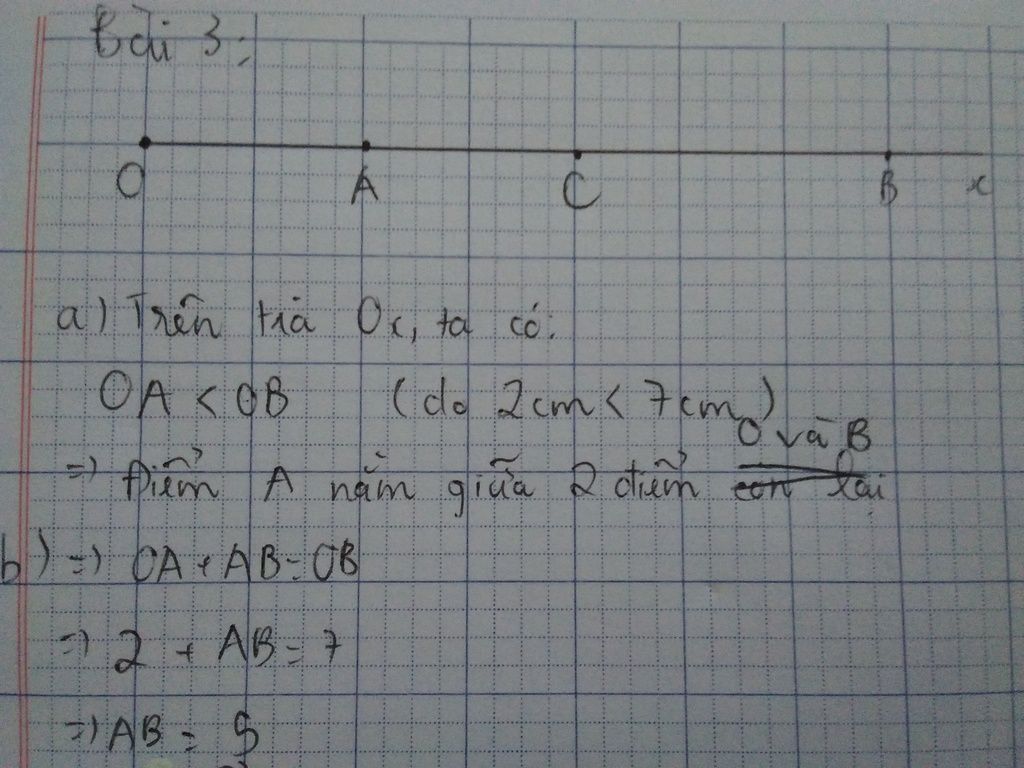 Bài 3:
O A C B x
a) Trên tia Ox, ta có:
OA < OB (do 2cm < 7cm)
O và B
=) Điểm A nằm giữa 2 điểm còn lại
b) =) OA + AB = OB
=) 2 + AB = 7
=) AB = 5